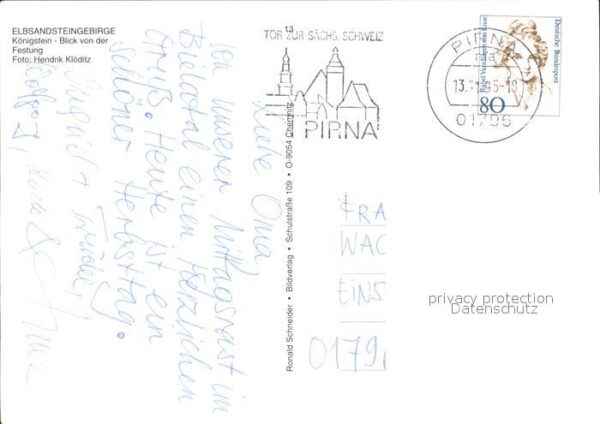 ELBSANDSTEINGEBIRGE
Königstein - Blick von der
Festung
Foto: Hendrik Klöditz
13
TOR ZUR SÄCHS. SCHWEIZ
PIRNA
PIRNA
13. 95-18
01796
Deutsche Bundespost
80
Liebe Oma,
von unserer Mittagsrast im
Bielatal einen herzlichen
Gruß. Heute ist ein
schöner Herbsttag.
Ingrid +
Ronald Schneider • Bildverlag • Schulstraße 109 • O-9054 Chemnitz
FRA
WAC
EINS
0179
privacy protection
Datenschutz